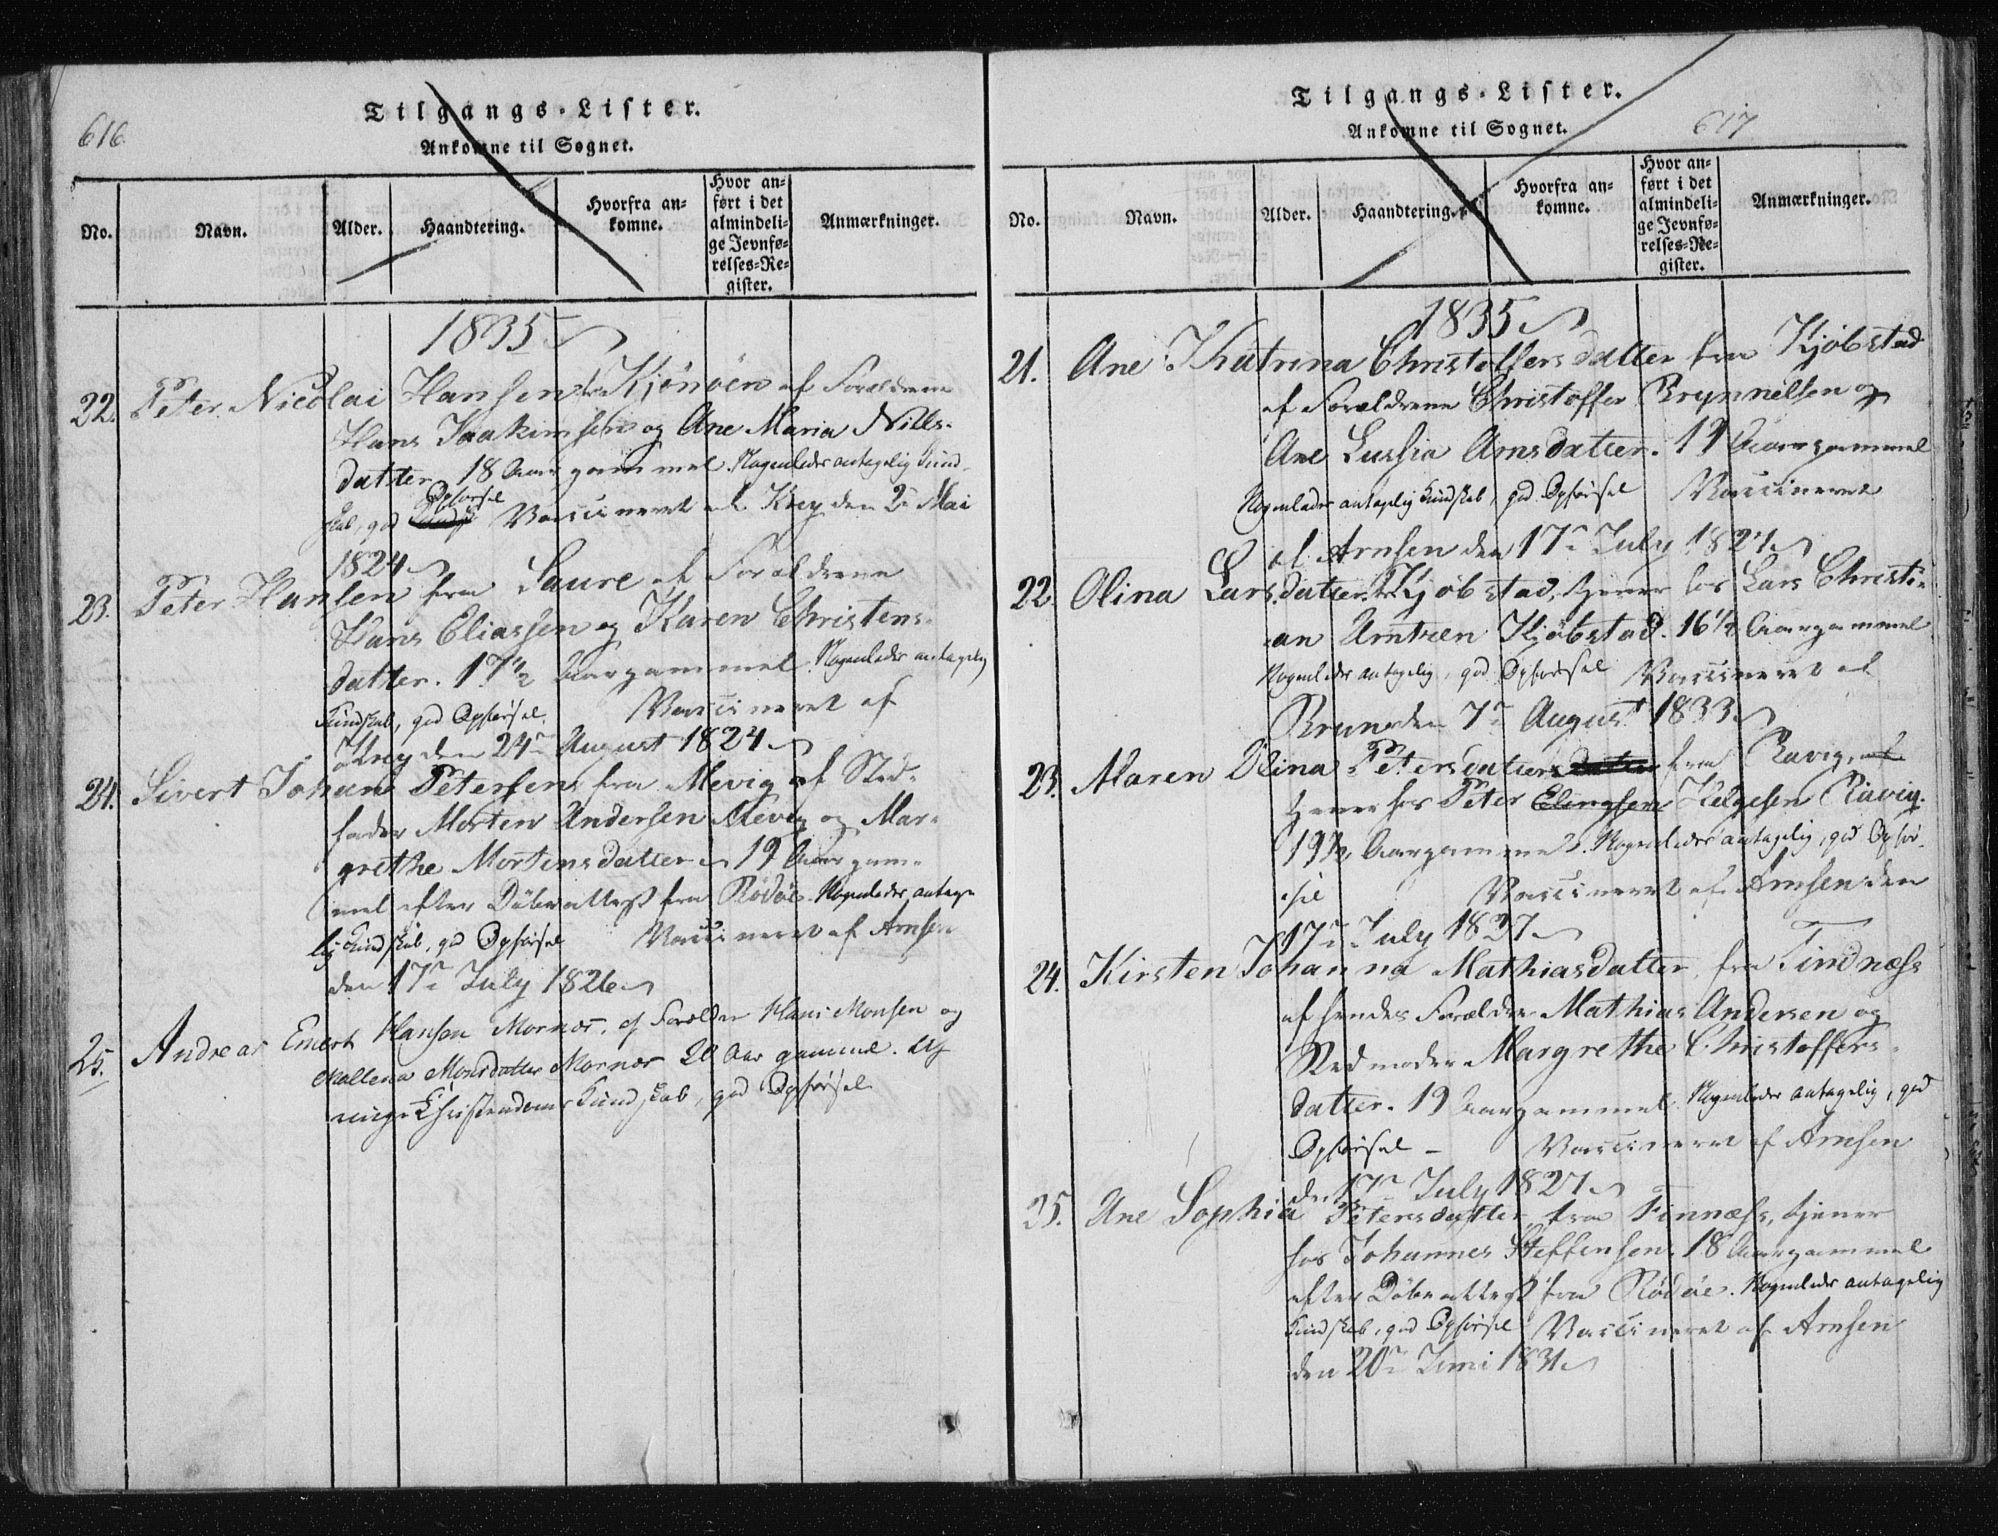 616
Tilgangs-Lister.
Ankomne til Sognet.
No.
Navn.
Alder.
Haandtering.
Hvorfra an-
komne.
Hvor an-
ført i det
almindeli-
ge Jevnfø-
relses-Re-
gister.
Anmærkninger.
1835
22. Peter Nicolai Hansen fra Kjønöen af Forældrene
Hans Joakimsen og Ane Maria Nills-
datter 18 Aar gammel. Nogenledes antagelig Kund-
skab, god Opförsel Vaccineret af Krey den 2n Mai
1824
23. Peter Hansen fra Saure af Forældrene
Hans Eliassen og Karen Christens-
datter. 17 1/2 Aar gammel. Nogenledes antagelig
Kundskab, god Opförsel. Vaccineret af
Krey den 24n August 1824
24. Sivert Johan Petersen fra Mevig af Sted-
fader Morten Andersen Mevig og Mar-
grethe Mortensdatter 19 Aar gam-
mel efter Döbeattest fra Rödöe. Nogenledes antage-
lig Kundskab, god Opförsel Vaccineret af Arnsen
den 17n July 1826
25. Andreas Enert Hansen Mornes. af Forældre Hans Monsen og
Mallena Monsdatter Mornes 20 Aar gammel.
Christendoms Kundskab, god Opförsel
Tilgangs-Lister.
Ankomne til Sognet.
617
No.
Navn.
Alder.
Haandtering.
Hvorfra an-
komne.
Hvor an-
ført i det
almindeli-
ge Jevnfø-
relses-Re-
gister.
Anmærkninger.
1835
21. Ane Katrina Christoffersdatter fra Kjöbstad
af Forældrene Christoffer Brynnelsen og
Ane Lussia Arnsdatter. 17 Aar gammel
Nogenledes antagelig Kundskab, god Opförsel Vaccineret
af Arnsen den 17n July 1827
22. Olina Larsdatter fra Kjöbstad, tjener hos Lars Christi-
an Arntzen Kjöbstad. 16 1/2 Aar gammel
Nogenledes antagelig, god Opförsel Vaccineret af
Brun den 7n August 1833
23. Maren Olina Petersdatter fra Ravig, af
tjener hos Peter Elingsen Helgesen Ravig.
19 1/2 Aar gammel. Nogenledes antagelig, god Opför-
sel Vaccineret af Arnsen den
17n July 1827
24. Kirsten Johanna Mathiasdatter fra Tindnæss
af hendes Forældre Mathias Andersen og
Stedmoder Margrethe Christoffers-
datter. 19 Aar gammel Nogenledes antagelig, god
Opförsel - Vaccineret af Arnsen
den 17n July 1827
25. Ane Sophia Petersdatter fra Finnæss, tjener
hos Johannes Steffensen. 18 Aar gammel
efter Döbeattest fra Rödöe. Nogenledes antagelig
Kundskab, god Opförsel Vaccineret af Arnsen
den 20n Juni 1831